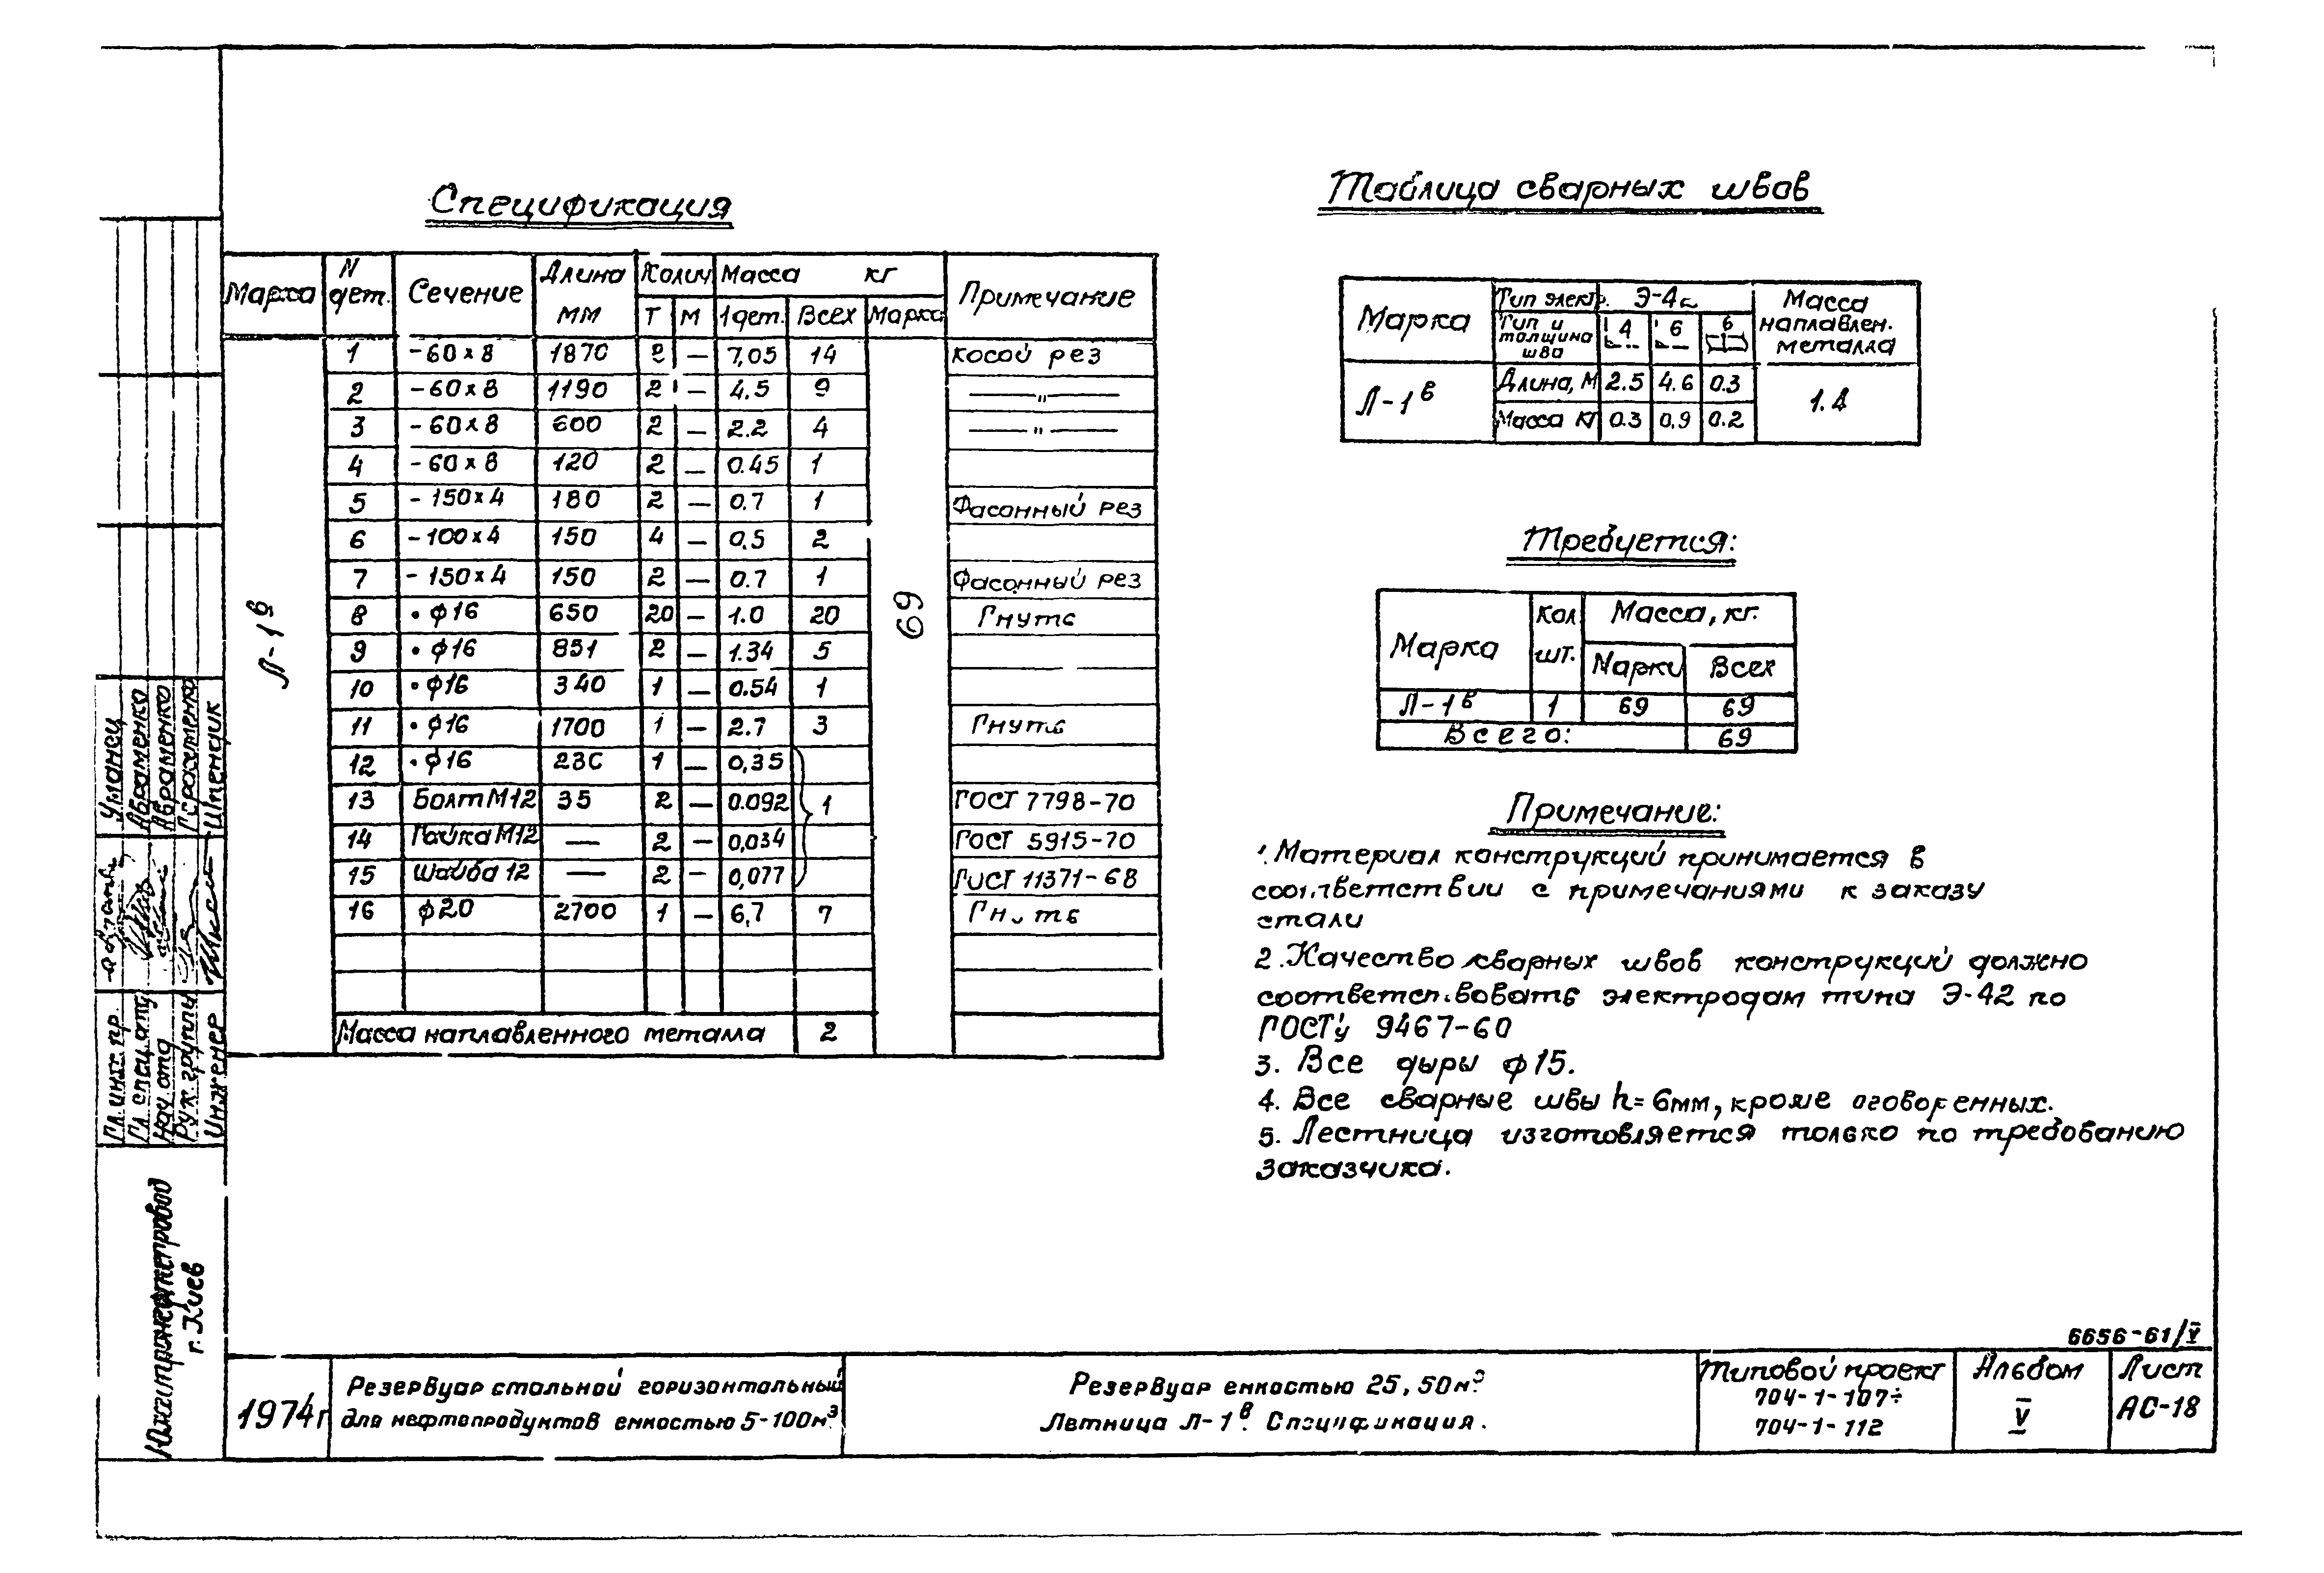 Спецификация
Марка N дет. Сечение Длина мм Колич Масса кг Примечание
Т М 1дет. Всех Марка
Л-1в 69
1 -60×8 1870 2 — 7,05 14 косой рез
2 -60×8 1190 2 — 4.5 9 —"—
3 -60×8 600 2 — 2.2 4 —"—
4 -60×8 120 2 — 0.45 1
5 -150×4 180 2 — 0.7 1 Фасонный рез
6 -100×4 150 4 — 0,5 2
7 -150×4 150 2 — 0.7 1 Фасонный рез
8 •ф16 650 20 — 1.0 20 Гнуть
9 •ф16 851 2 — 1.34 5
10 •ф16 340 1 — 0.54 1
11 •ф16 1700 1 — 2.7 3 Гнуть
12 •ф16 1 — 0,35
13 Болт М12 35 2 — 0.092 1 ГОСТ 7798-70
14 Гайка М12 — 2 — 0,034 ГОСТ 5915-70
15 Шайба 12 — 2 — 0,077 ГОСТ 11371-68
16 ф20 2700 1 — 6,7 7 Гнуть
Масса наплавленного металла 2
Таблица сварных швов
Марка Тип электр. Масса наплавлен. металла
Тип и толщина шва 4 6 6
Л-1в Длина, м 2.5 4.6 0.3 1.4
Масса кг 0.3 0,9 0.2
Требуется:
Марка Кол шт. Масса, кг.
Марки Всех
Л-1в 1 69 69
Всего: 69
Примечание:
1. Материал конструкций принимается в
соответствии с примечаниями к заказу
стали
2. Качество сварных швов конструкций должно
соответствовать электродам типа Э-42 по
ГОСТу 9467-60
3. Все дыры ф15.
4. Все сварные швы h=6мм, кроме оговоренных.
5. Лестница изготовляется только по требованию
заказчика.
Гл. инж. пр. Уманец
Гл спец. отд Абраменко
Нач. отд Абраменко
Рук. группы
Инженер Шпендик
Южгипронефтепровод
г. Киев
6656-61/V
1974г
Резервуар стальной горизонтальный
для нефтепродуктов емкостью 5-100м³.
Резервуар емкостью 25, 50м³.
Летница Л-1в. Спецификация.
Типовой проект
704-1-107÷
704-1-112
Альбом
V
Лист
АС-18